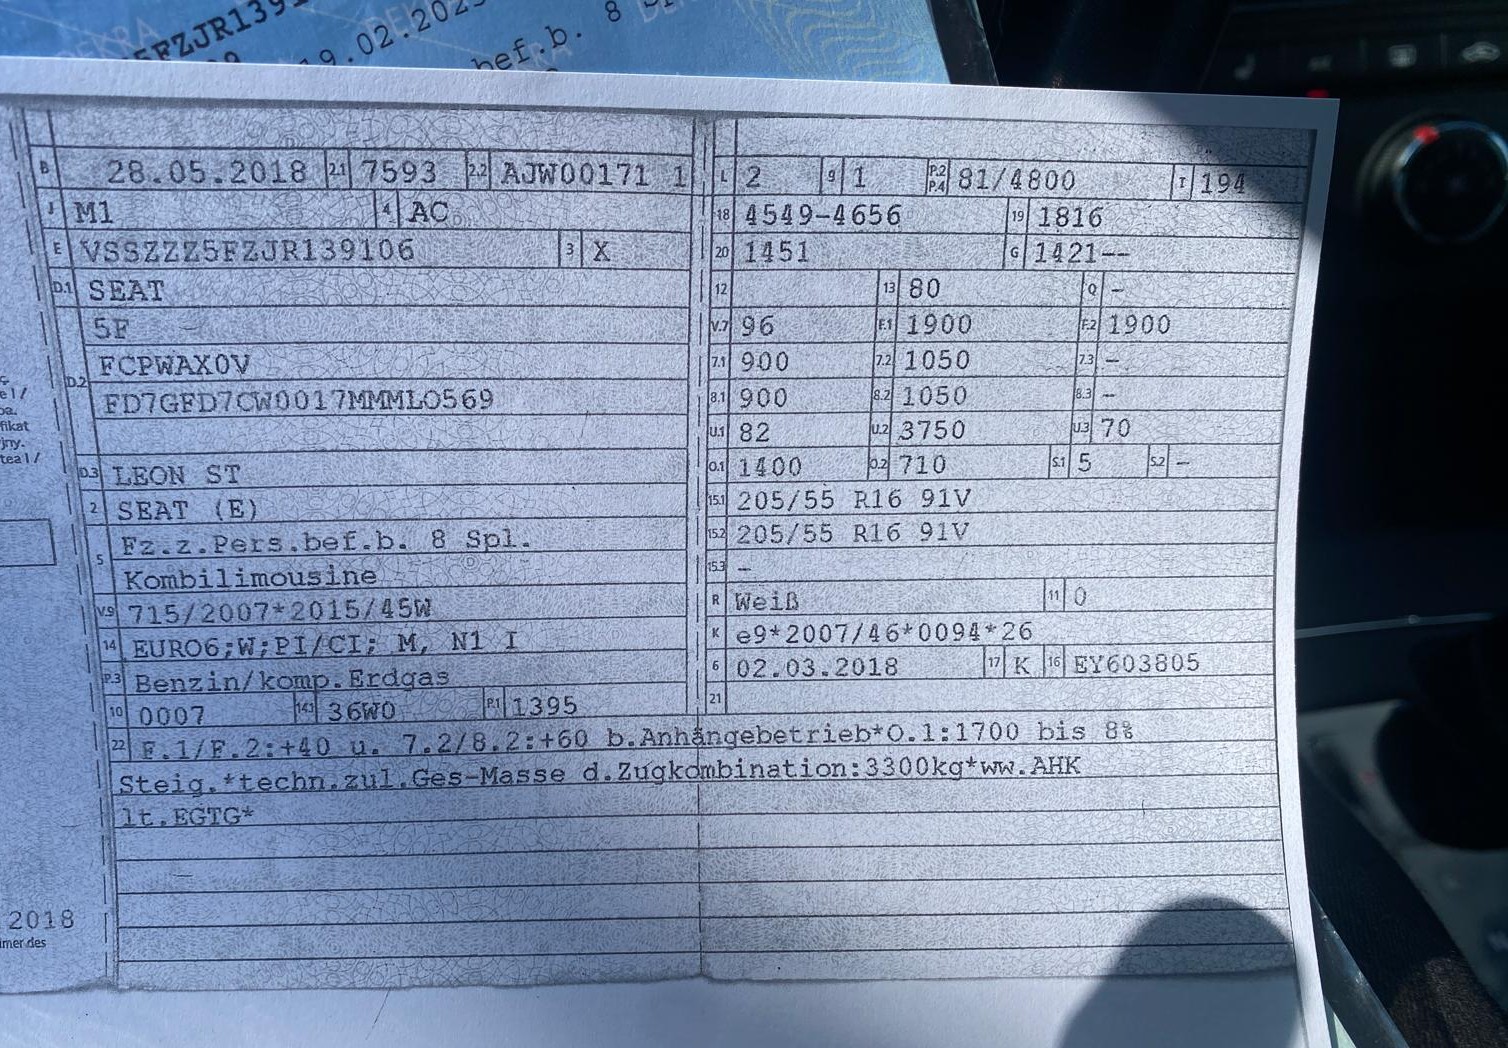 5FZJR1391
19.02.202
bef.b. 8
DEKRA
B 28.05.2018 2.1 7593 2.2 AJW00171 1
J M1 4 AC
E VSSZZZ5FZJR139106 3 X
D.1 SEAT
5F
D.2 FCPWAX0V
FD7GFD7CW0017MMML0569
D.3 LEON ST
2 SEAT (E)
5 Fz.z.Pers.bef.b. 8 Spl.
Kombilimousine
V.9 715/2007*2015/45W
14 EURO6;W;PI/CI; M, N1 I
P.3 Benzin/komp.Erdgas
10 0007 14.1 36W0 P.1 1395
L 2 9 1 P.2 P.4 81/4800 T 194
18 4549-4656 19 1816
20 1451 G 1421--
12 13 80 Q -
V.7 96 F.1 1900 F.2 1900
7.1 900 7.2 1050 7.3 -
8.1 900 8.2 1050 8.3 -
U.1 82 U.2 3750 U.3 70
O.1 1400 O.2 710 S.1 5 S.2 -
15.1 205/55 R16 91V
15.2 205/55 R16 91V
15.3 -
R Weiß 11 0
K e9*2007/46*0094*26
6 02.03.2018 17 K 16 EY603805
21
22 F.1/F.2:+40 u. 7.2/8.2:+60 b.Anhängebetrieb*O.1:1700 bis 8%
Steig.*techn.zul.Ges-Masse d.Zugkombination:3300kg*ww.AHK
lt.EGTG*
2018